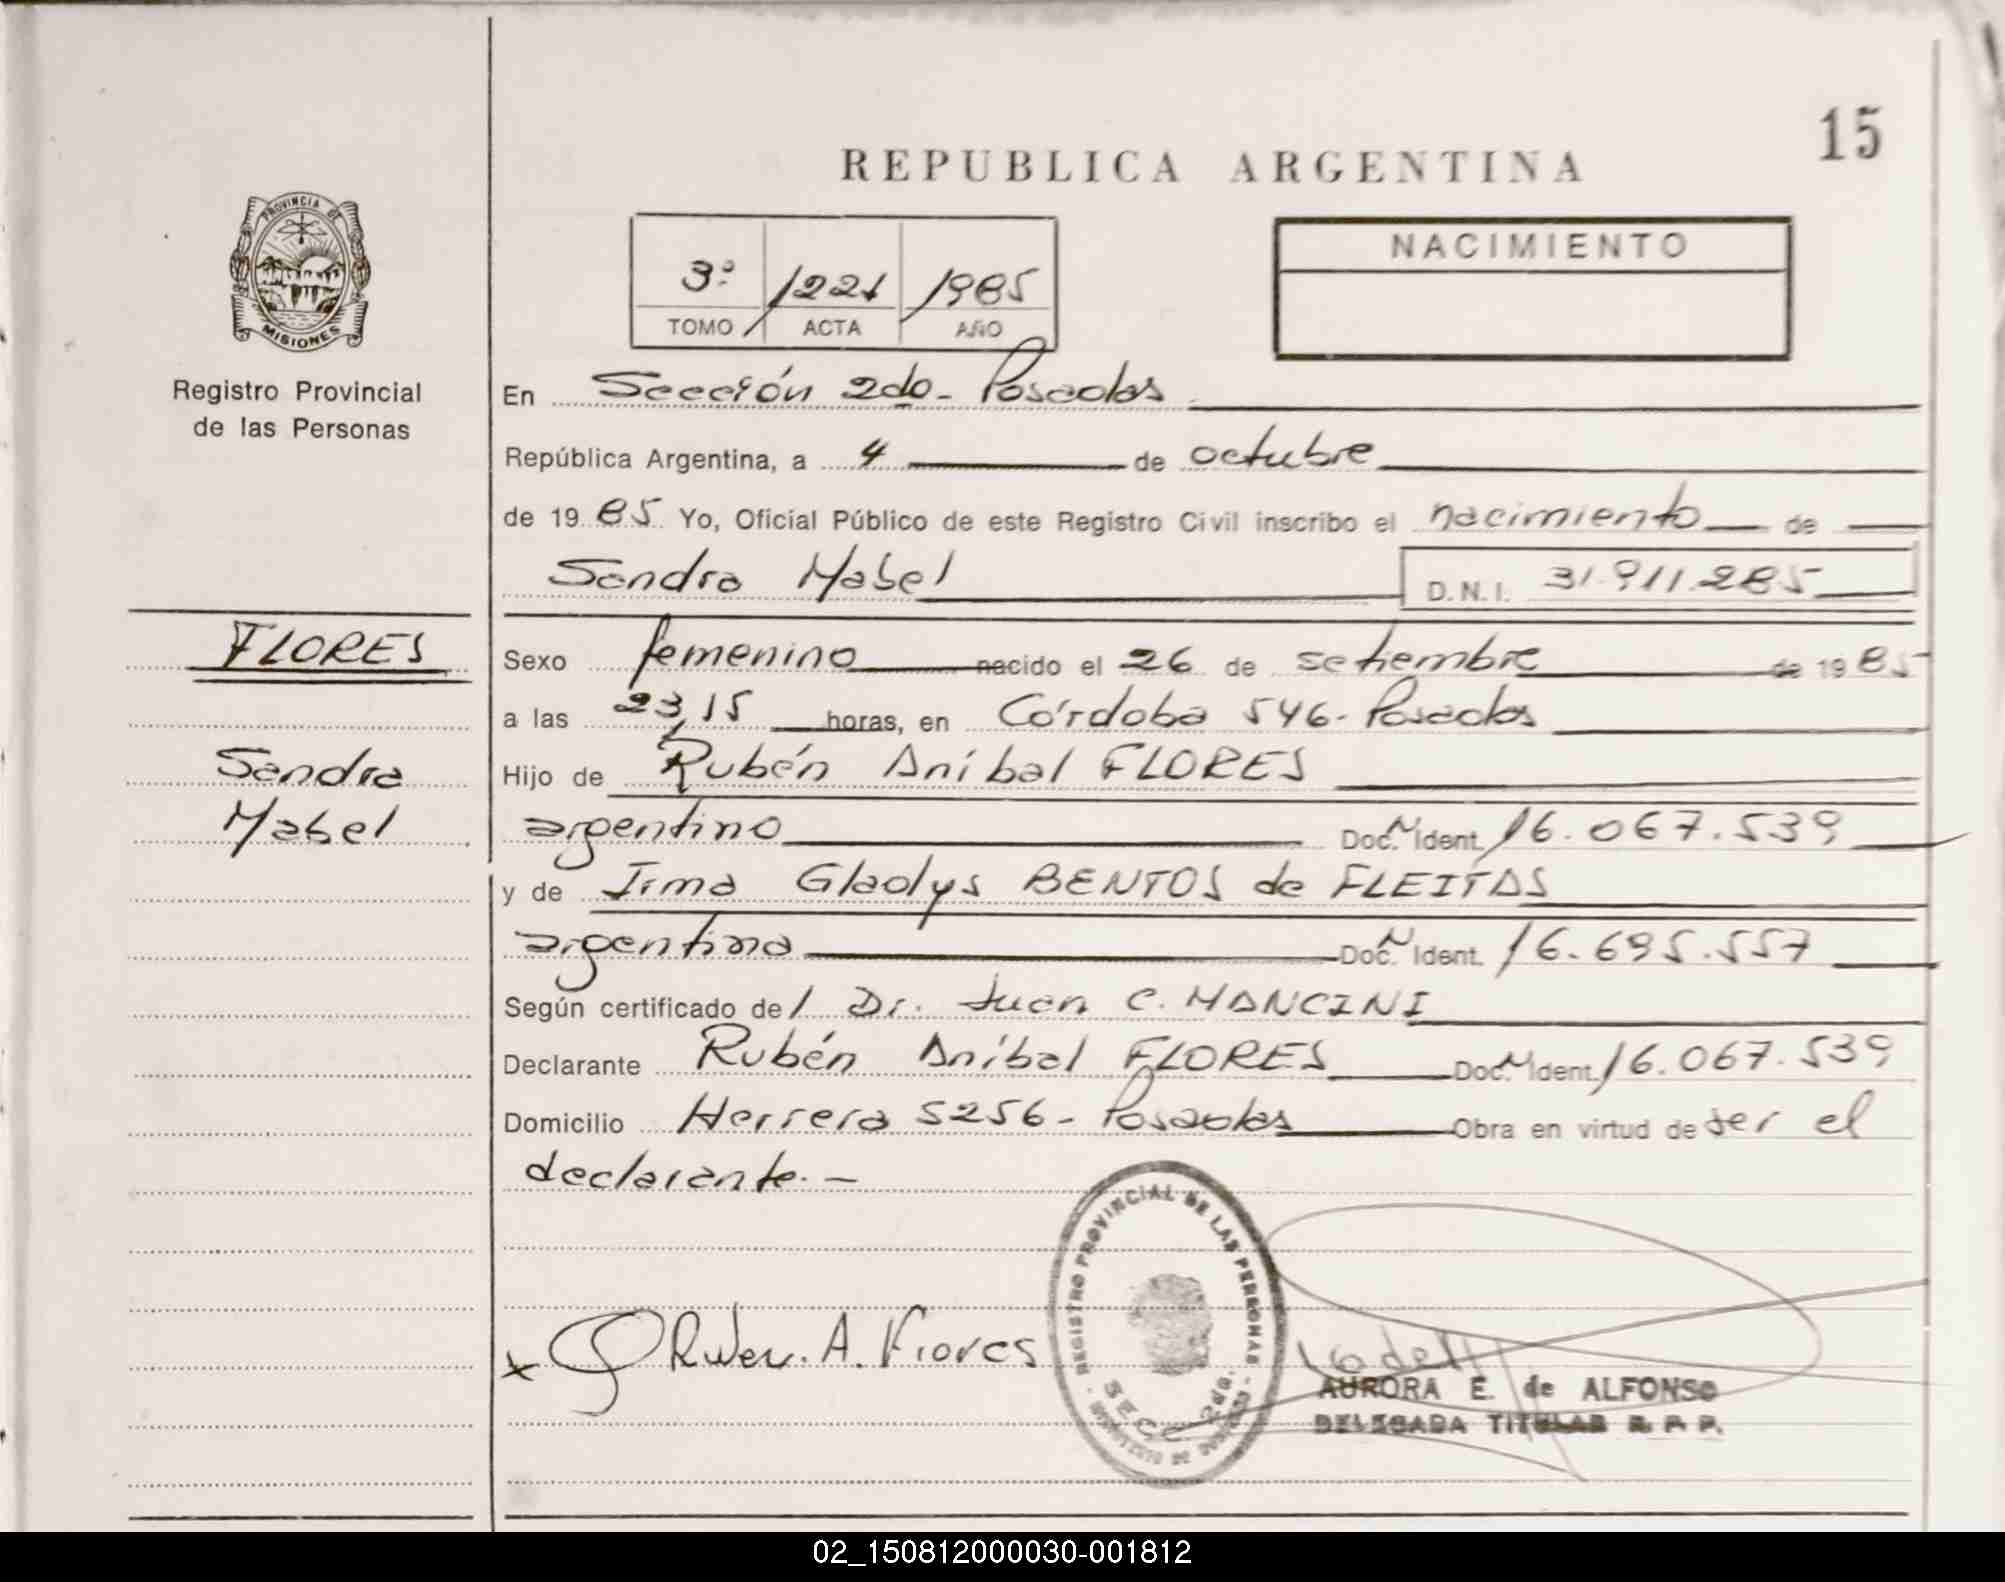 15
REPUBLICA ARGENTINA
PROVINCIA DE
MISIONES
Registro Provincial
de las Personas
3º 1221 1985
TOMO ACTA AÑO
NACIMIENTO
En Sección 2do- Posadas
República Argentina, a 4 de octubre
de 19 85 Yo, Oficial Público de este Registro Civil inscribo el nacimiento de
Sandra Mabel D.N.I. 31.911.285
FLORES
Sexo femenino nacido el 26 de setiembre de 19 85
a las 23,15 horas, en Córdoba 546- Posadas
Sandra
Hijo de Rubén Aníbal FLORES
Mabel
argentino Doc. N Ident. 16.067.539
y de Irma Gladys BENTOS de FLEITAS
argentina Doc. N Ident. 16.695.557
Según certificado de l Dr. Juan C. MANCINI
Declarante Rubén Aníbal FLORES Doc. N Ident. 16.067.539
Domicilio Herrera 5256- Posadas Obra en virtud de ser el
declarante.-
REGISTRO PROVINCIAL DE LAS PERSONAS
SECC 2da.
x Ruben. A. Flores
AURORA E. de ALFONSO
DELEGADA TITULAR R. P. P.
02_150812000030-001812